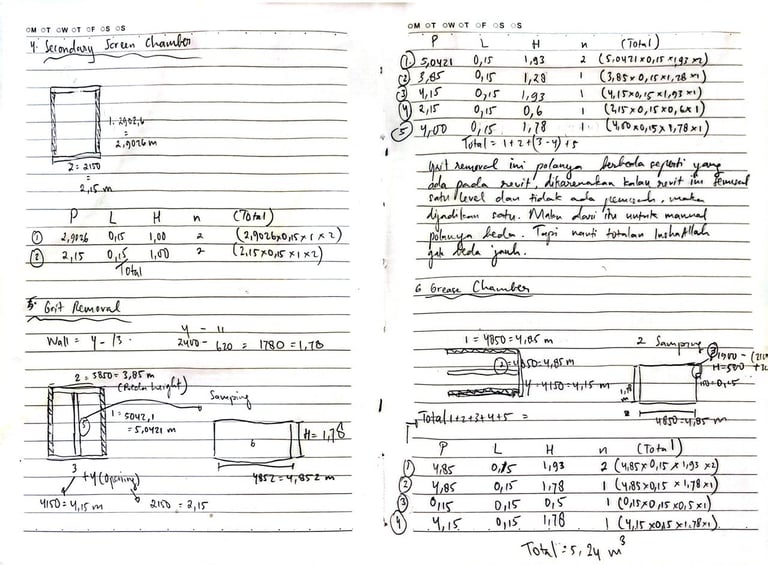 OM OT OW OT OF OS OS
4. Secondary Screen Chamber
1. 2902,6
=
2,9026 m
2 = 2150
=
2,15 m
P L H n (Total)
① 2,9026 0,15 1,00 2 (2,9026x0,15x1x2)
② 2,15 0,15 1,00 2 (2,15x0,15x1x2)
Total
5. Grit Removal
Wall = 4 - 13.
4 - 11
2400 - 620 = 1780 = 1,78
2 = 3850 = 3,85 m
(Beda height)
1 = 5042,1
= 5,0421 m
5
3
+4 (Opening)
4150 = 4,15 m
2150 = 2,15
Samping
6
H = 1,78
4852 = 4,852 m
OM OT OW OT OF OS OS
P L H n (Total)
① 5,0421 0,15 1,93 2 (5,0421x0,15x1,93x2)
② 3,85 0,15 1,28 1 (3,85x0,15x1,28x1)
③ 4,15 0,15 1,93 1 (4,15x0,15x1,93x1)
④ 2,15 0,15 0,6 1 (2,15x0,15x0,6x1)
⑤ 4,00 0,15 1,78 1 (4,00x0,15x1,78x1)
Total = 1+2+(3-4)+5
Grit removal ini polanya berbeda seperti yang
ada pada revit, dikarenakan kalau revit ini
satu level dan tidak ada pemisah, maka
dijadikan satu. Maka dari itu untuk manual
polanya beda. Tapi nanti totalan InshaAllah
gak beda jauh.
6 Grease Chamber
1 = 4850 = 4,85 m
2 = 4850 = 4,85 m
4 = 4150 = 4,15 m
2 Samping
3
H = 500
1,78
4850 = 4,85 m
Total 1+2+3+4+5 =
P L H n (Total)
① 4,85 0,15 1,93 2 (4,85x0,15x1,93x2)
② 4,85 0,15 1,78 1 (4,85x0,15x1,78x1)
③ 0,15 0,15 0,5 1 (0,15x0,15x0,5x1)
④ 4,15 0,15 1,78 1 (4,15x0,15x1.78x1)
Total = 5,24 m³